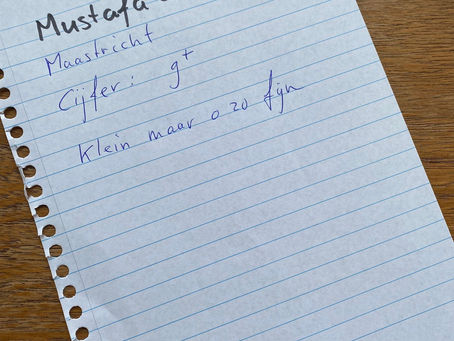 Mustafa
Maastricht
Cijfer: 9+
Klein maar o zo fijn